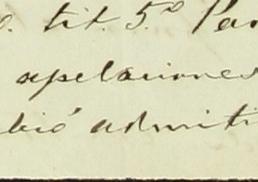 tit. 5.º Par
apelaciones
bió admiti